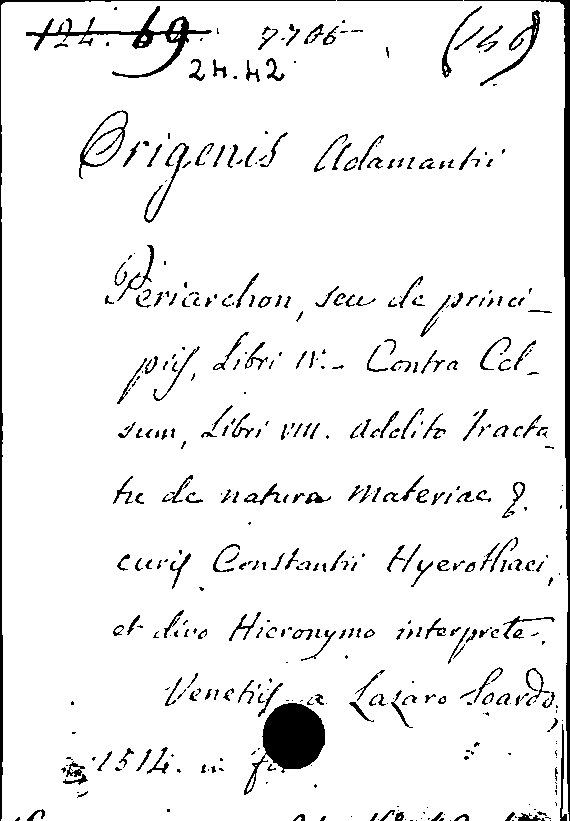 124. 69. 7706 (156)
24.42
Origenis Adamantii
6)
Periarchon, seu de princi-
piis, Libri IV.- Contra Cel-
sum, Libri VIII. addito Tracta-
tu de natura materiae
curis Constantii Hyerothaei,
et divo Hieronymo interprete.
Venetiis a Lazaro Soardo,
1514. in